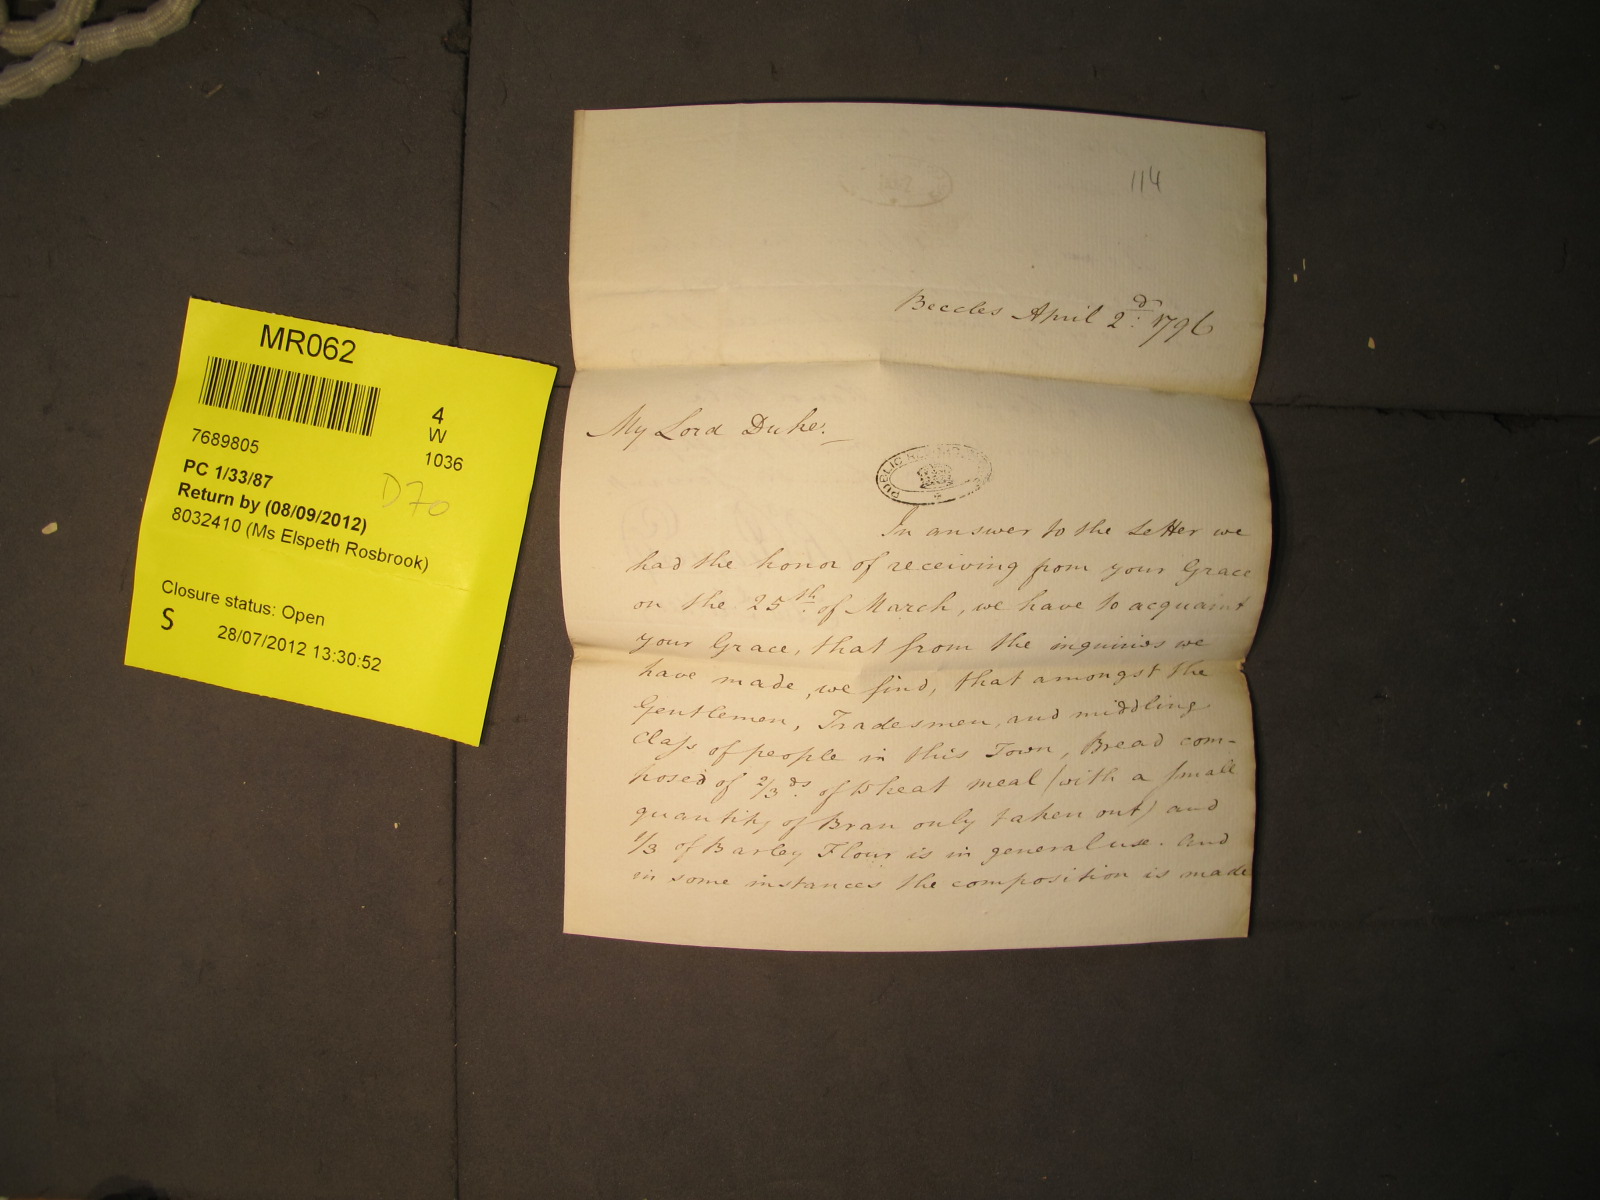 MR062
4
W
1036
7689805
PC 1/33/87
D70
Return by (08/09/2012)
8032410 (Ms Elspeth Rosbrook)
Closure status: Open
S
28/07/2012 13:30:52
114
Beccles April 2d. 1796
My Lord Duke.
PUBLIC
In answer to the Letter we
had the honor of receiving from your Grace
on the 25th. of March, we have to acquaint
your Grace, that from the inquiries we
have made, we find, that amongst the
Gentlemen, Tradesmen, and middling
Class of people in this Town, Bread com-
posed of 2/3ds. of Wheat meal (with a small
quantity of Bran only taken out) and
1/3 of Barley Flour is in general use. And
in some instances the composition is made